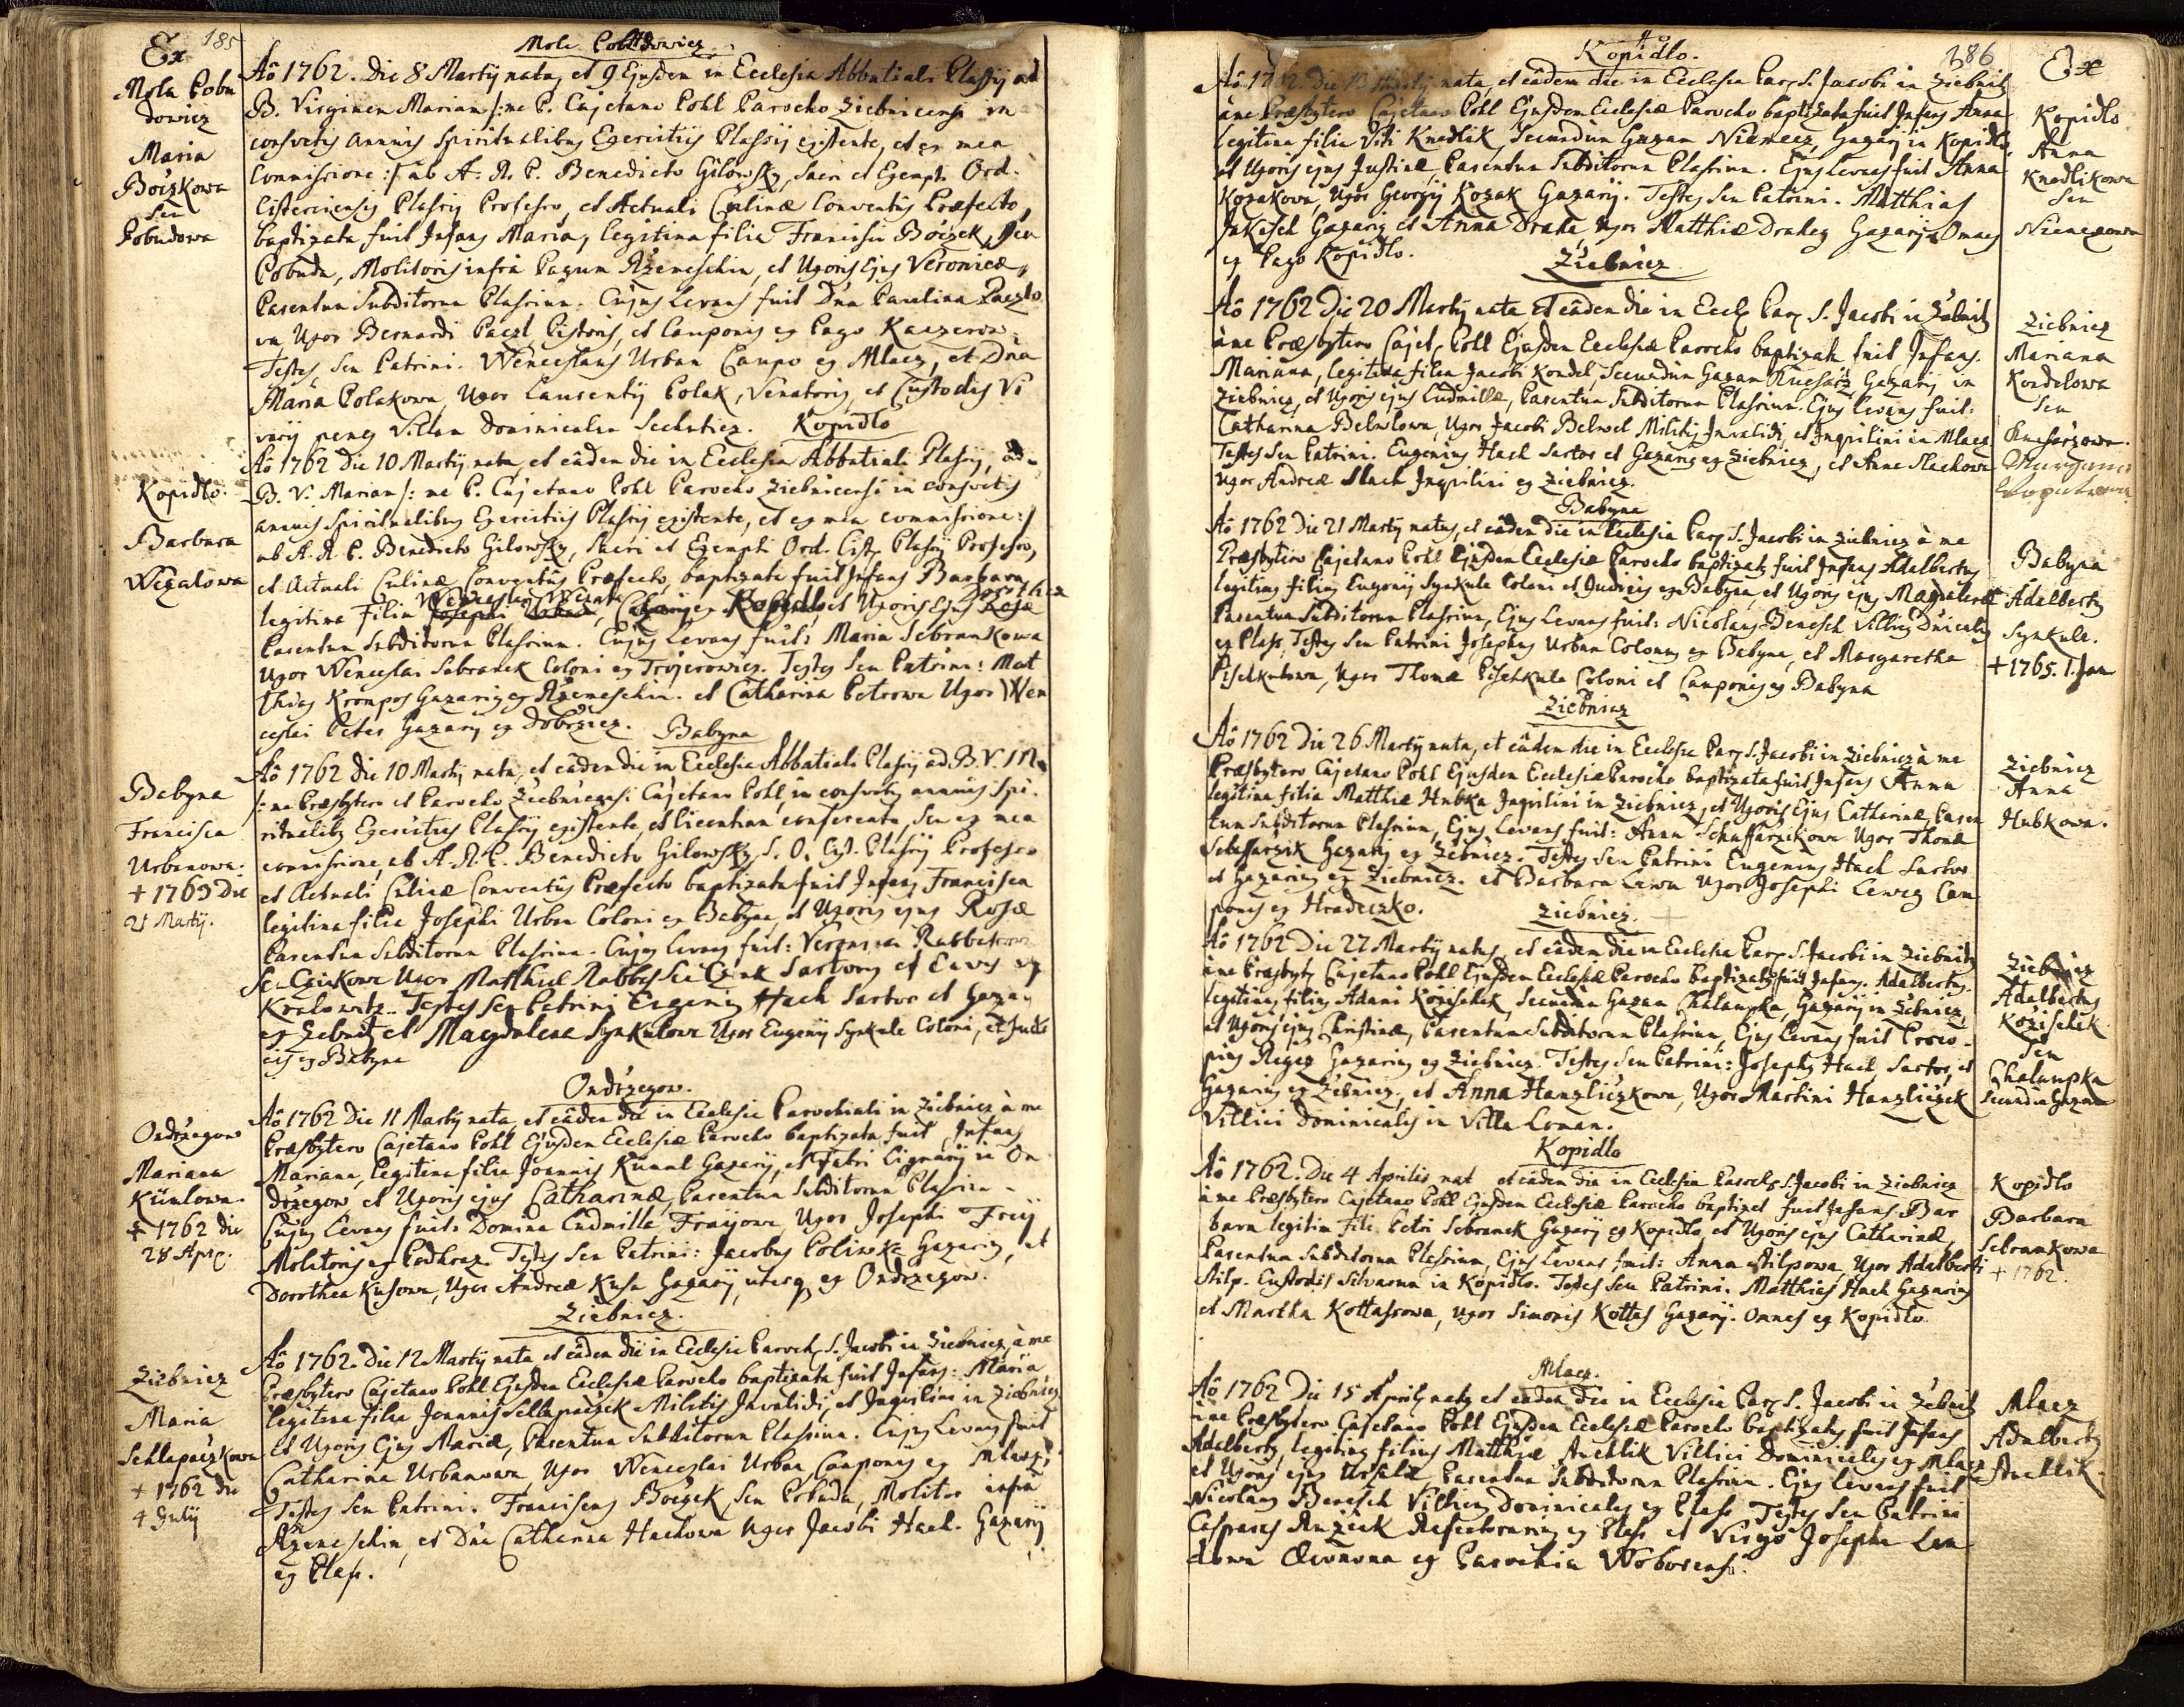 185
Ex
Mola Pobu
dowicz
Maria
Boczkowa
Seu
Pobudowa
Aõ 1762. Die 8 Martÿ nata, et 9 Ejusden in Ecclesia Abbatiali Plassÿ ad
B. Virginen Mariam /: me P. Cajetano Pohl Parocho Ziebnicensi in
consvetis annuis Spiritualibus Exercitiis Plassÿ existente, et ex mea
Commissione :/ ab A. R. P. Benedicto Gilowsky, Sacri et Exempti Ord.
Cisterciensis Plassÿ Professo, et Actuali Culinæ Conventûs Præfecto,
baptizata fuit Infans Maria, legitima filia Francisci Boczek, Seu
Pobuda, Molitoris infra Pagum Rzemeschin, et Uxoris Ejus Veronicæ,
Parentum Subditorum Plassium. Cujus Levans fuit Dna Paulina Paczlo
wa Uxor Bernardi Paczl Pistoris, et Cauponis ex Pago Kaczerow.
Testes Seu Patrini. Wenceslaus Urban Caupo ex Mlacz, et Dña
Maria Polakowa, Uxor Laurentÿ Polak, Venatoris, et Custodis Vi
varÿ penes Villam Dominicalem Sechuticz.
Kopidlo
Kopidlo.
Barbara
Wezalowa
Aõ 1762 Die 10 Martÿ nata, et eâden die in Ecclesia Abbatiali Plassÿ, ad
B. V. Mariam /: me P. Cajetano Pohl Parocho Ziebnicensi in consvetis
annuis Spiritualibus Exercitiis Plassÿ existente, et ex mea commissione :/
ab A. R. P. Benedicto Gilowsky, Sacri et Exempti Ord. Cist. Plassÿ Professo,
et Actuali Culinæ Conventûs Præfecto, baptizata fuit Infans Barbara,
legitima Filia Kopidlo, et Uxoris Ejus
Parentum Subditorum Plassium. Cujus Levans fuit: Maria Sebrankowa
Uxor Wenceslai Sebranek Coloni ex Trojerowicz. Testes Seu Patrini: Mat
thias Krompos Gazarius ex Rzemeschin. et Catharina Petrowa Uxor Wen
ceslai Peter Gazarÿ ex Dobrzicz.
Babyna
Babyna
Francisca
Urbanowa.
+ 1763 Die
21 Martÿ.
Aõ 1762 Die 10 Martÿ nata, et eâden die in Ecclesia Abbatiali Plassÿ ad B. V. M
/: me Præsbytero et Parocho Ziebnicensi Cajetano Pohl, in consvetis annuis Spi-
ritualibus Exercitiis Plassÿ existente, et licentiam conferente, Seu ex mea
commissione, ab A. R. P. Benedicto Gilowsky, S. O. Cist. Plassÿ Professo
et Actuali Culinæ Conventûs Præfecto baptizata fuit Infans Francisca
legitima filia Josephi Urban Coloni ex Babyna, et Uxoris ejus Rosæ
Parentum Subditorum Plassium. Cujus Levans fuit: Veronica
Seu Czinkowa Uxor Matthiæ Rabbas Seu Czink Sartoris et Civis ex
Kralowitz. Testes Seu Patrini Eugenius Hach Sartor et Gazar
ex Zebnitz et Magdalena Synkulowa Uxor Eugenÿ Synkule Coloni, et Judi
cis ex Babyna
Ondrzegow.
Ondrzegow
Mariana
Künlowa.
+ 1762 die
28 Apr.
Aõ 1762 Die 11 Martÿ nata, et eâden die in Ecclesia Parochiali in Ziebnicz à me
Præsbytero Cajetano Pohl Ejusden Ecclesiæ Parocho baptizata fuit Infans
Mariana, legitima filia Joannis Künnl Gazarÿ, et Fabri Lignarÿ in On
drzegow, et Uxoris ejus Catharinæ, Parentum Subditorum Plassium.
Cujus Levans fuit: Domina Ludmilla Freÿowa, Uxor Josephi Freÿ
Molitoris ex Podhrac. Testes Seu Patrini: Jacobus Poliwka Gazarius, et
Dorothea Kusowa, Uxor Andreæ Kusa Gazarÿ, uterque ex Ondrzegow.
Ziebnicz.
Ziebnicz
Maria
Schlapaczkowa
+ 1762 die
4 Julÿ
Aõ 1762. Die 12 Martÿ nata et eâden die in Ecclesia Paroch. S. Jacobi in Ziebnicz, à me
Præsbytero Cajetano Pohl Ejusden Ecclesiæ Parocho baptizata fuit Infans: Maria
legitima filia Joannis Schlapaczek Militis Invalidi, et Inquilini in Ziebnicz
et Uxoris Ejus Mariæ, Parentum Subditorum Plassium. Cujus Levans fuit
Catharina Urbanowa Uxor Wenceslai Urban Cauponis ex Mlacz.
Testes Seu Patrini. Franciscus Boczek Seu Pobuda, Molitor infra
Rzemeschin, et Dña Catharina Hachowa Uxor Jacobi Hach. Gazarÿ
ex Plass.
186
Kopidlo.
Ex
Kopidlo
Anna
Knedlikowa
Seu
Niemezowa
Aõ 1762 Die 13 Martÿ nata, et eâden die in Ecclesia Par. S. Jacobi in Ziebnitz
à me Præsbytero Cajetano Pohl Ejusden Ecclesiæ Parocho baptizata fuit Infans Anna
legitima filia Viti Knedlik, Secundum Gazam Niemecz, Gazarÿ in Kopidlo,
et Uxoris ejus Justinæ, Parentum Subditorum Plassium. Ejus Levans fuit Anna
Kozakowa, Uxor Georgÿ Kozak Gazarÿ. Testes Seu Patrini. Matthias
Jakesch Gazarius et Anna Drahe, Uxor Matthiæ Drahes Gazarÿ Omnes
ex Pago Kopidlo.
Ziebnicz
Ziebnicz
Mariana
Kondelowa
Seu
Kucharzowa.
Aõ 1762 Die 20 Martÿ nata et eâden die in Eccl. Par. S. Jacobi in Zebnitz
à me Præsbytero Cajet. Pohl Ejusden Ecclesiæ Parocho baptizata fuit Infans.
Mariana, legitima filia Jacobi Kondel, Secundum Gazam Kucharz, Gazarÿ in
Ziebnicz, et Uxoris ejus Ludmillæ, Parentum Subditorum Plassium. Ejus Levans fuit:
Catharina Belwlowa, Uxor Jacobi Belwel Militis Invalidi, et Inquilini in Mlacz
Testes Seu Patrini. Eugenius Hach Sartor et Gazarius ex Ziebnicz, et Anna Slachowa
Uxor Andreæ Slach Inquilini ex Ziebnicz.
Babyna
Babyna
Adalbertus
Synkule.
+ 1765. 1. Jan
Aõ 1762 Die 21 Martÿ natus, et eâden die in Ecclesia Par. S. Jacobi in Ziebnicz à me
Præsbytero Cajetano Pohl Ejusden Ecclesiæ Parocho baptizatus fuit Infans Adalbertus
legitimus filius Eugenÿ Synkule Coloni et Judicis ex Babyna, et Uxoris ejus Magdalenæ
Parentum Subditorum Plassium, Ejus Levans fuit: Nicolaus Benesch Villicus Dnicalis
ex Plass, Testes Seu Patrini Josephus Urban Colonus ex Babyna, et Margaretha
Pischkulowa, Uxor Thomæ Pischkula Coloni et Cauponis ex Babyna
Ziebnicz
Ziebnicz
Anna
Hubkowa.
Aõ 1762 Die 26 Martÿ nata, et eâden die in Ecclesia Par. S. Jacobi in Ziebnicz à me
Præsbytero Cajetano Pohl Ejusden Ecclesiæ Parocho baptizata fuit Infans Anna
legitima filia Matthiæ Hubka Inquilini in Ziebnicz, et Uxoris Ejus Catharinæ, Paren
tum Subditorum Plassium, Ejus Levans fuit: Anna Schaffarzikowa Uxor Thomæ
Schaffarzik Gazarÿ ex Zebnicz. Testes Seu Patrini Eugenius Hach Sartor
et Gazarius ex Ziebnicz. et Barbara Lewa Uxor Josephi Lewez Cau
ponis ex Hradeczko.
Ziebnicz.
Ziebnicz
Adalbertus
Kozischek
Seu
Chalaupka
Secundum Gazam
Aõ 1762 Die 27 Martÿ natus, et eâden die in Ecclesia Par. S. Jacobi in Ziebnitz
à me Præsbyt. Cajetano Pohl Ejusden Ecclesiæ Parocho baptizatus fuit Infans. Adalbertus.
legitimus filius Adami Kozischek, Secundum Gazam Chalaupka, Gazarÿ in Zebnicz,
et Uxoris ejus Christinæ, Parentum Subditorum Plassium, Ejus Levans fuit Proco-
pius Regez Gazarius ex Ziebnicz. Testes Seu Patrini: Josephus Hach Sartor, et
Gazarius ex Zebnicz, et Anna Hanzliczkowa, Uxor Martini Hanzliczek
Villici Dominicalis in Villa Loman.
Kopidlo
Kopidlo
Barbara
Sebrankowa
+ 1762.
Aõ 1762. Die 4 Aprilis nat et eâden die in Ecclesia Paroch. S. Jacobi in Ziebnicz
à me Præsbytero Cajetano Pohl Ejusden Ecclesiæ Parocho baptizat fuit Infans Bar
bara legitim fili Petri Sebranek Gazarÿ ex Kopidlo, et Uxoris ejus Catharinæ,
Parentum Subditorum Plassium, Ejus Levans fuit: Anna Stilpowa, Uxor Adalberti
Stilp. Custodis Silvarum in Kopidlo. Testes Seu Patrini. Matthias Hach Gazarius
et Martha Kottassowa, Uxor Simonis Kottas Gazarÿ. Omnes ex Kopidlo.
Mlacz.
Mlacz
Adalbertus
Auchlik.
Aõ 1762 Die 15 Aprilis natus et eâden die in Ecclesia Par. S. Jacobi in Zebnitz
à me Præsbytero Cajetano Pohl Ejusden Ecclesiæ Parocho baptizatus fuit Infans
Adalbertus, legitimus filius Matthiæ Auchlik Villici Dominicalis ex Mlacz
et Uxoris ejus Ursulæ Parentum Subditorum Plassium. Ejus Levans fuit
Nicolaus Benesch Villicus Dominicalis ex Plass Testes Seu Patrini
Casparus Ruziek Refectorarius ex Plass et Virgo Josepha Lan
dowa Œconoma ex Parochia Woborensi.